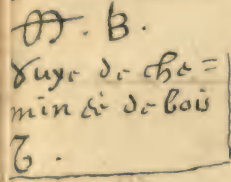 M. B.
suye de che=
minée de bois